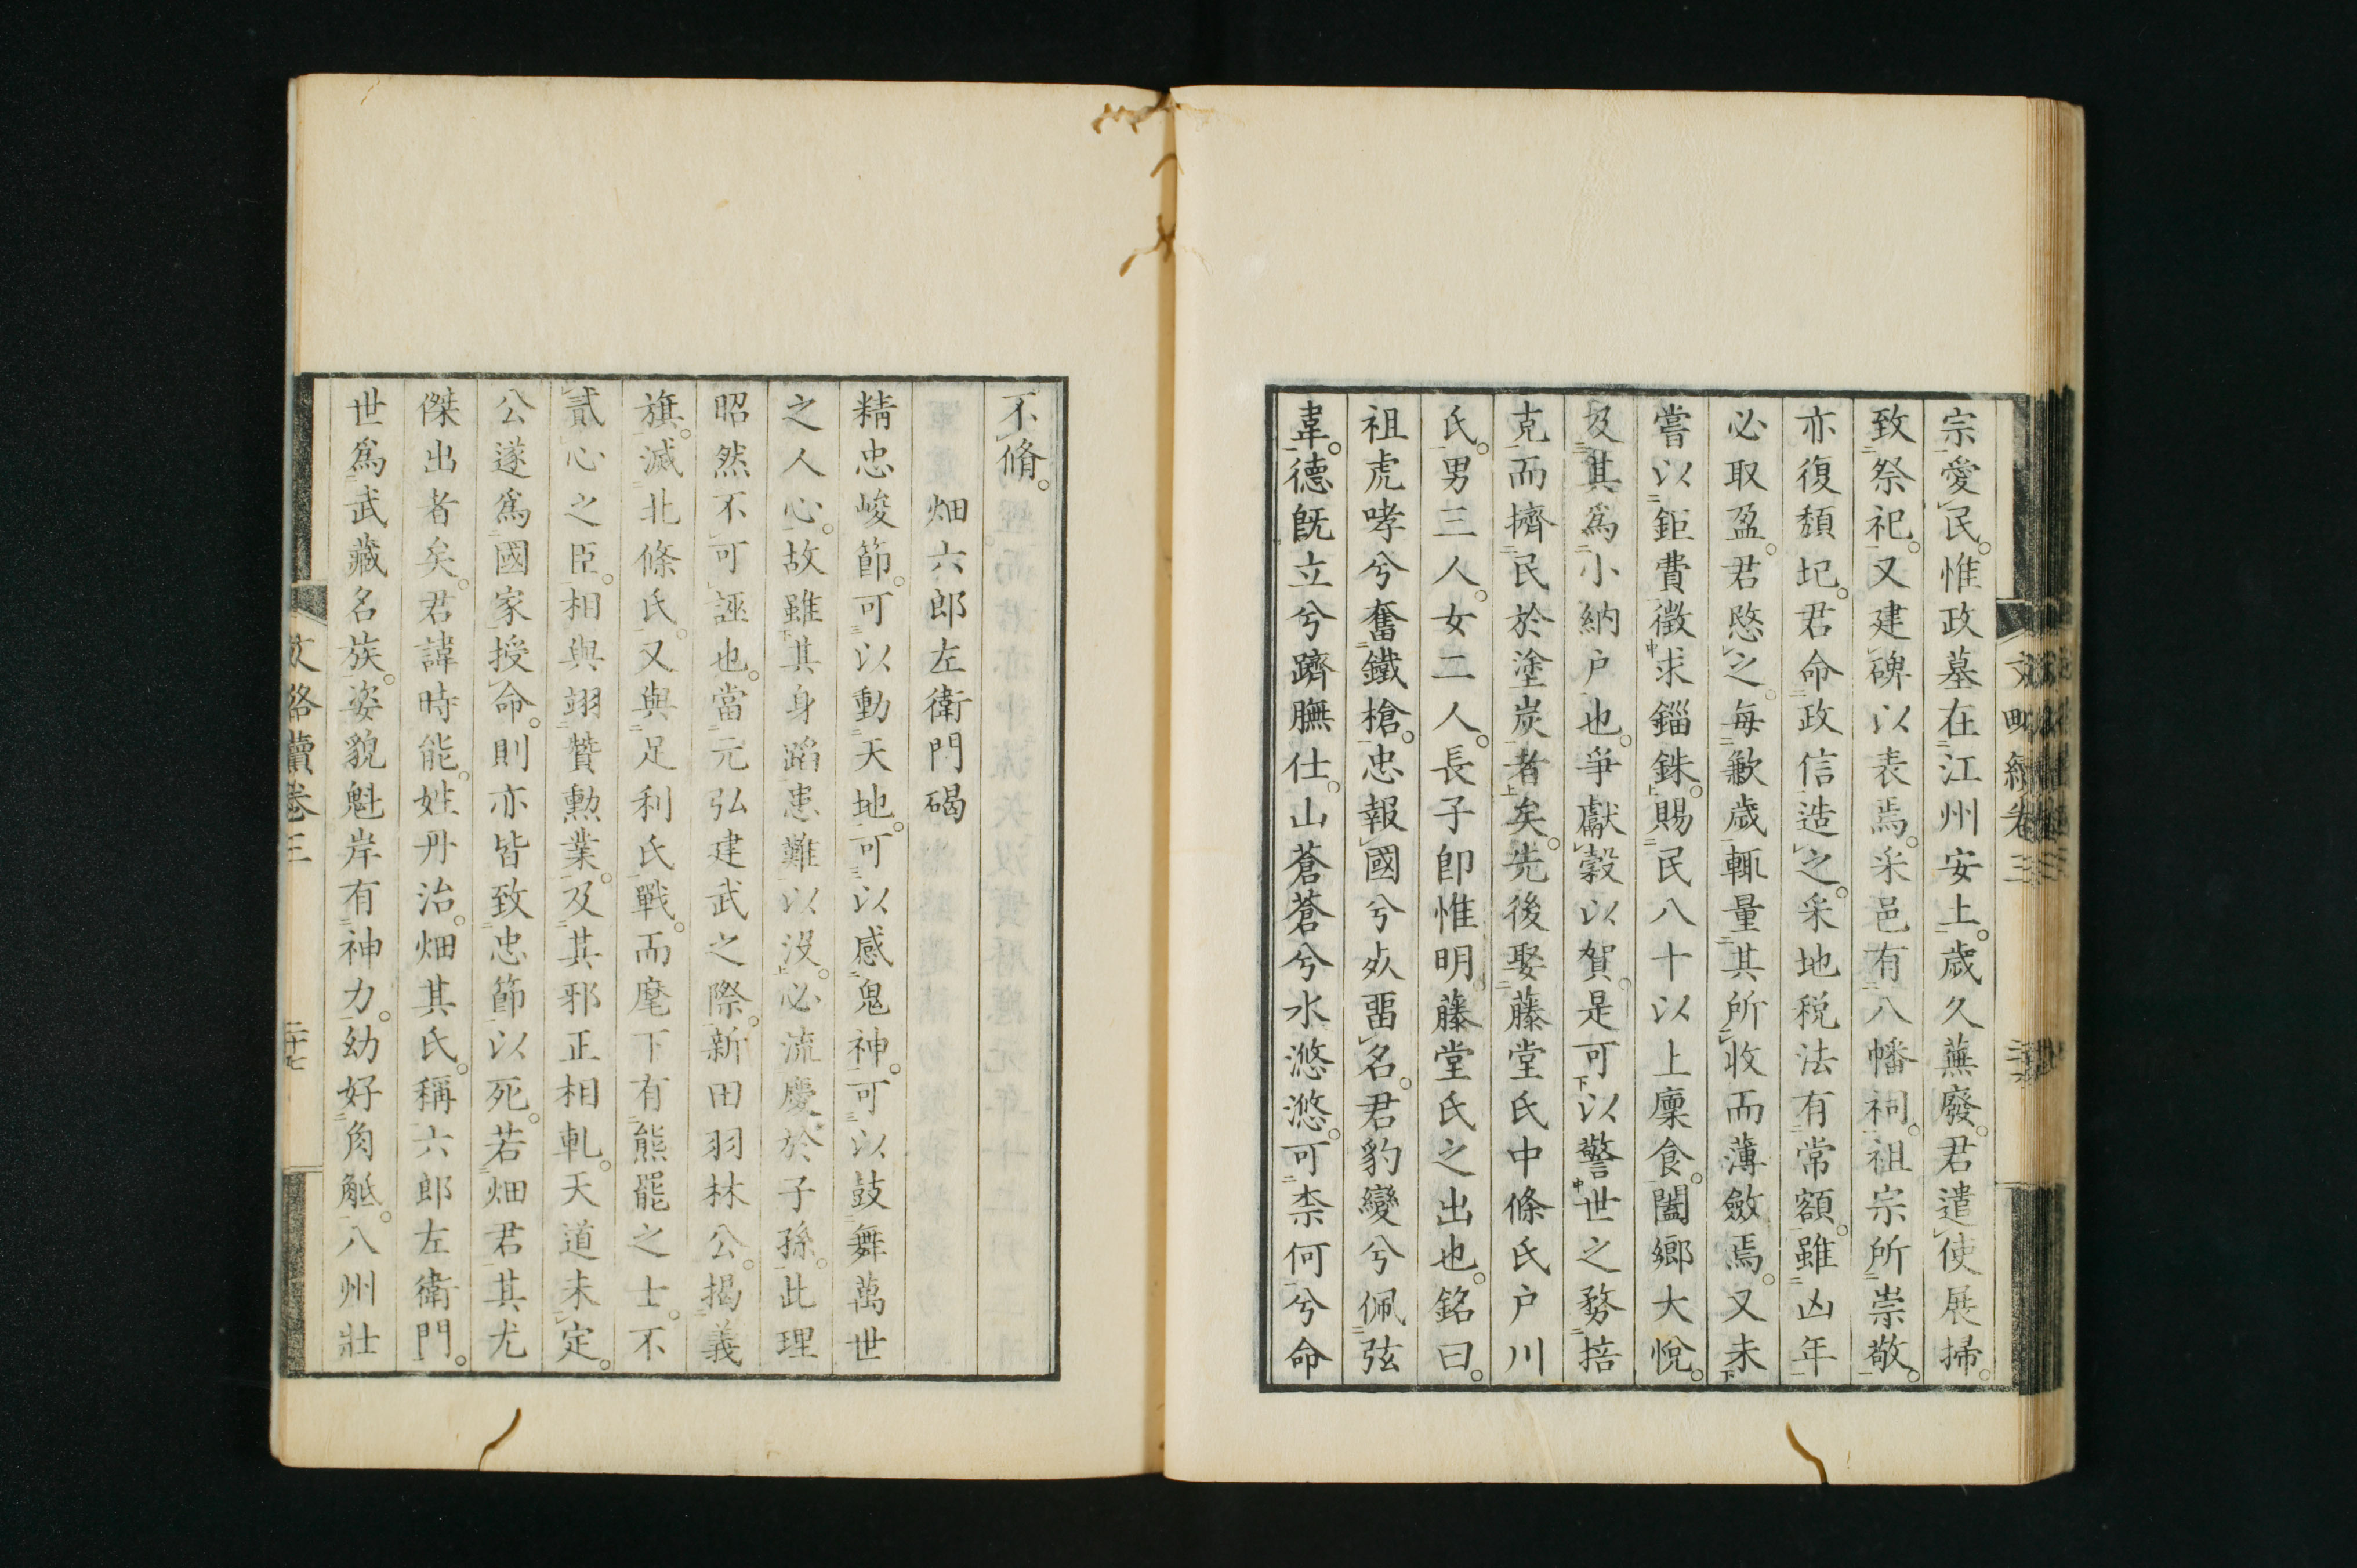 宗愛民。惟政墓在江州安上。歳久蕪廢。君遣使展掃。
致祭祀。又建碑以表焉。采邑有八幡祠。祖宗所崇敬。
亦復頽圮。君命政信造之。采地税法有常額。雖凶年
必取盈。君愍之。毎歉歳輒量其所收而薄斂焉。又未
嘗以鉅費徴求錙銖。賜民八十以上廩食。闔郷大悅。
及其爲小納戸也。爭獻穀以賀。是可以警世之務掊
克而擠民於塗炭者矣。先後娶藤堂氏中條氏戸川
氏。男三人。女二人。長子卽惟明。藤堂氏之出也。銘曰。
祖虎哮兮奮鐵槍。忠報國兮㸃畱名。君豹變兮佩弦
韋。德旣立兮躋膴仕。山蒼蒼兮水悠悠。可柰何兮命
不脩。
畑六郎左衛門碣
精忠峻節。可以動天地。可以感鬼神。可以鼓舞萬世
之人心。故雖其身蹈患難以沒。必流慶於子孫。此理
昭然不可誣也。當元弘建武之際。新田羽林公。揭義
旗。滅北條氏。又與足利氏戰。而麾下有熊羆之士。不
貳心之臣。相與翊贊勲業。及其邪正相軋。天道未定。
公遂爲國家授命。則亦皆致忠節以死。若畑君其尤
傑出者矣。君諱時能。姓丹治。畑其氏。稱六郎左衛門。
世爲武藏名族。姿貌魁岸有神力。幼好角觝。八州壯
文略續卷三
二十七